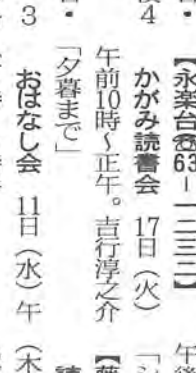 【永楽台☎63－一二三二】
かがみ読書会 17日(火)
午前10時～正午。吉行淳之介
「夕暮まで」
おはなし会 11日(水)午